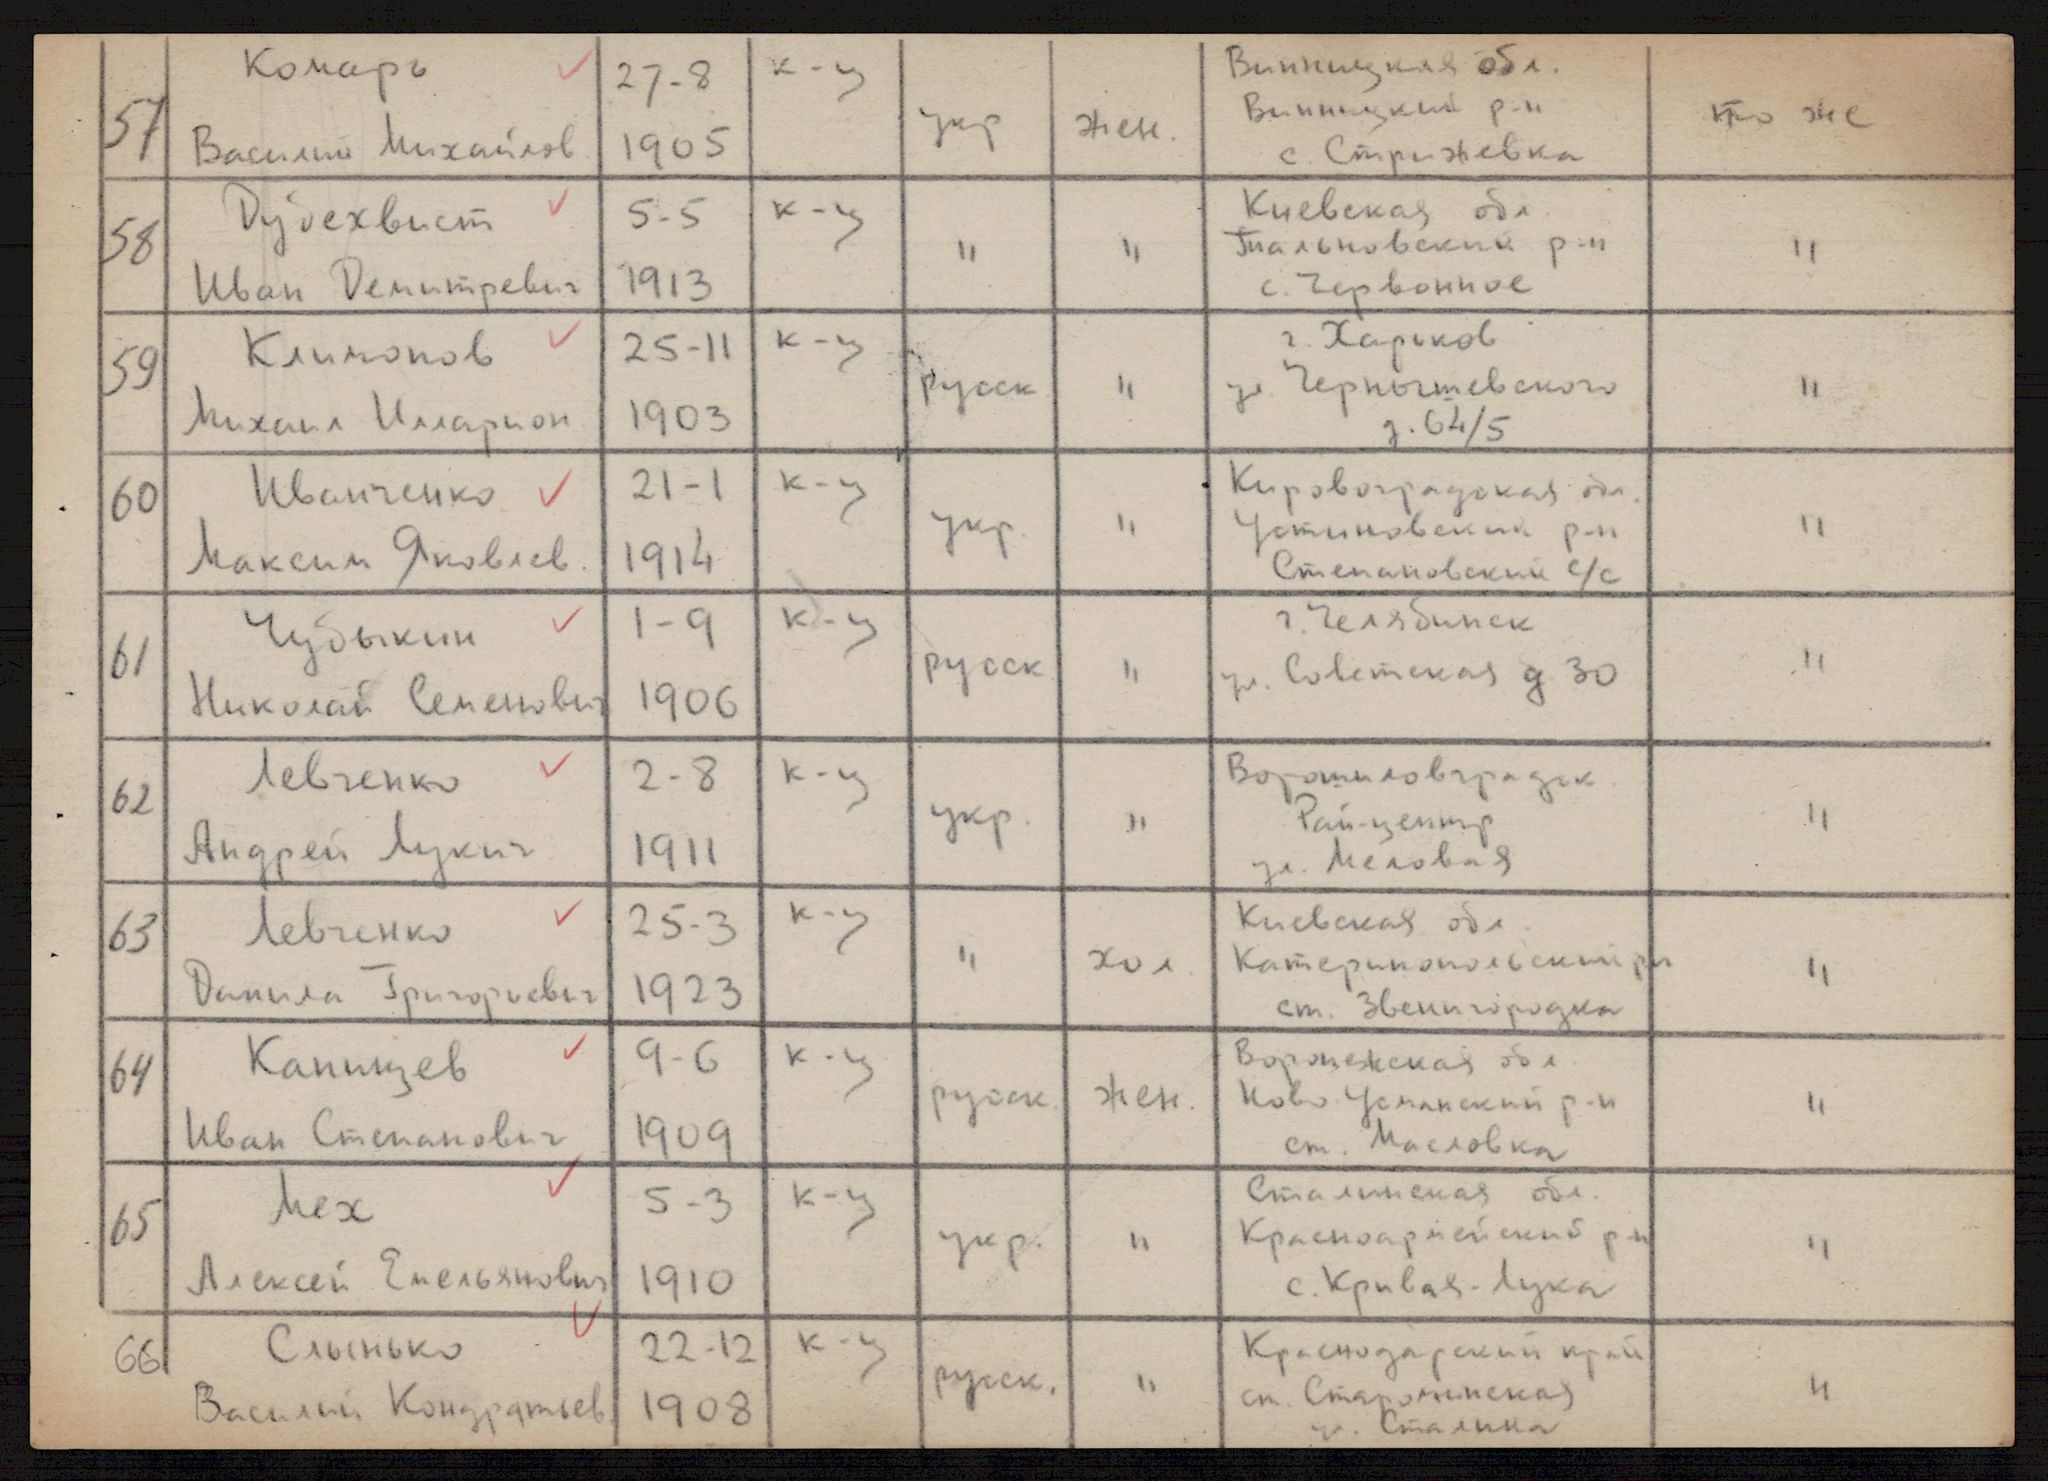 57 Комарь 27-8 к-ц укр жен. Винницкая обл.
Винницкий р-н то же
Василий Михайлов 1905 с. Стрижевка
58 Дубехвист 5-5 к-ц " " Киевская обл.
Тальновский р-н "
Иван Демитревич 1913 с. Червонное
59 Климонов 25-11 к-ц русск " г. Харьков
ул Чернышевского "
Михаил Илларион. 1903 д. 64/5
60 Иванченко 21-1 к-ц укр. " Кировоградская обл.
Устиновский р-н "
Максим Яковлев. 1914 Степановский с/с
61 Чубыкин 1-9 к-ц русск " г. Челябинск
Николай Семенович 1906 ул. Советская д 30 "
62 Левченко 2-8 к-ц укр. " Ворошиловградск
Рай-центр "
Андрей Лукич 1911 ул. Меловая
63 Левченко 25-3 к-ц " хол. Киевская обл.
Катеринопольский рн "
Данила Григорьевич 1923 ст. Звенигородка
64 Канищев 9-6 к-ц русск. жен. Воронежская обл.
Ново Усманский р-н "
Иван Степанович 1909 ст. Масловка
65 Мех 5-3 к-ц укр. " Сталинская обл.
Красноармейский р-н "
Алексей Емельянович 1910 с. Кривая-Лука
66 Слынько 22-12 к-ц русск. " Краснодарский край
ст. Староминская "
Василий Кондратьев. 1908 ул. Сталина